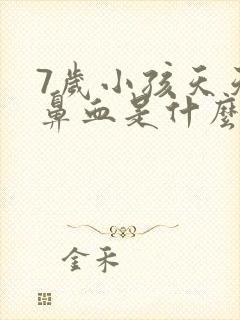 7歲小孩天天
鼻血是什麼
金禾